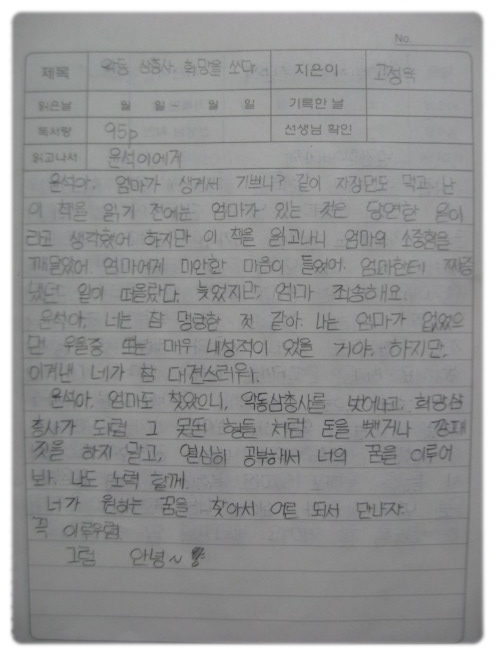 No.
제목 악동 삼총사 희망을 쏘다 지은이 고정욱
읽은날 월 일 ~ 월 일 기록한 날
독서량 95p 선생님 확인
읽고나서 윤석이에게
윤석아, 엄마가 생겨서 기쁘니? 같이 자장면도 먹고 난
이 책을 읽기 전에는 엄마가 있는 것은 당연한 일이
라고 생각했어 하지만 이 책을 읽고나니 엄마의 소중함을
깨달았어 엄마에게 미안한 마음이 들었어. 엄마한테 짜증
냈던 일이 떠올랐다. 늦었지만, 엄마 죄송해요.
윤석아, 너는 참 명랑한 것 같아. 나는 엄마가 없었으
면 우울증 또는 매우 내성적이 었을 거야. 하지만,
이겨낸 네가 참 대견스러워.
윤석아, 엄마도 찾았으니, 악동삼총사를 벗어나고, 희망삼
총사가 되렴 그 못된 형들 처럼 돈을 뺏거나 깡패
짓을 하지 말고, 열심히 공부해서 너의 꿈을 이루어
봐. 나도 노력 할께.
너가 원하는 꿈을 찾아서 어른 되서 만나자.
꼭 이루우렴.
그럼 안녕~